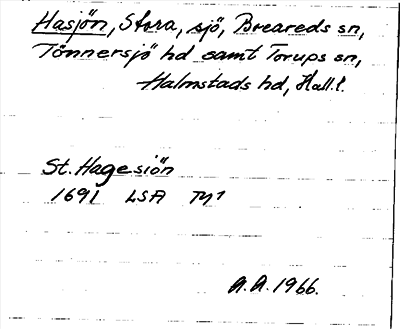 Hasjön, Stora, sjö, Breareds sn,
Tönnersjö hd samt Torups sn,
Halmstads hd, Hall.l.
St. Hagesiön
1691 LSA TY1
A.A. 1966.